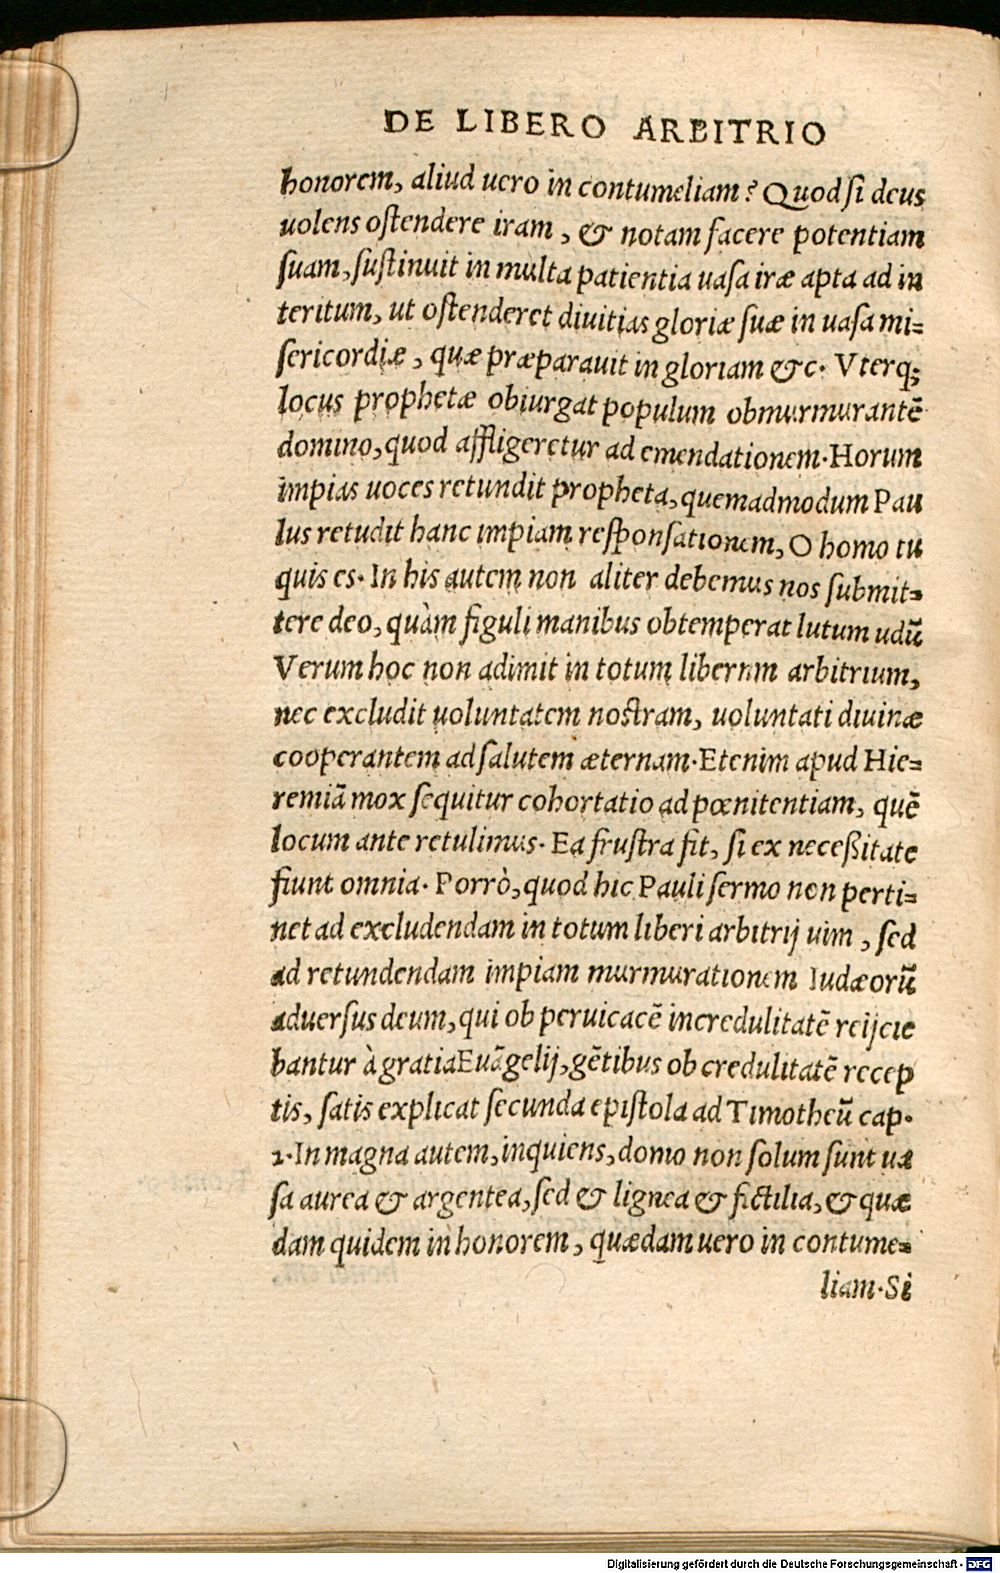 DE LIBERO ARBITRIO
honorem, aliud uero in contumeliam? Quod si deus
uolens oſtendere iram, & notam facere potentiam
ſuam, ſuſtinuit in multa patientia uaſa iræ apta ad in
teritum, ut oſtenderet diuitias gloriæ ſuæ in uaſa mi=
ſericordiæ, quæ præparauit in gloriam &c. Vterq;
locus prophetæ obiurgat populum obmurmurantē
domino, quod affligeretur ad emendationem. Horum
impias uoces retundit propheta, quemadmodum Pau
lus retudit hanc impiam reſponſationem, O homo tu
quis es. In his autem non aliter debemus nos ſubmit=
tere deo, quàm figuli manibus obtemperat lutum udū
Verum hoc non adimit in totum libernm arbitrium,
nec excludit uoluntatem noſtram, uoluntati diuinæ
cooperantem ad ſalutem æternam. Etenim apud Hie=
remiā mox ſequitur cohortatio ad pœnitentiam, quē
locum ante retulimus. Ea fruſtra fit, ſi ex neceßitate
fiunt omnia. Porrò, quod hic Pauli ſermo non perti=
net ad excludendam in totum liberi arbitrij uim, ſed
ad retundendam impiam murmurationem Iudæorū
aduerſus deum, qui ob peruicacē incredulitatē reijcie
bantur à gratia Euāgelij, gētibus ob credulitatē recep
tis, ſatis explicat ſecunda epiſtola ad Timotheū cap.
2. In magna autem, inquiens, domo non ſolum ſunt uæ
ſa aurea & argentea, ſed & lignea & fictilia, & quæ
dam quidem in honorem, quædam uero in contume=
liam. Si
Digitalisierung gefördert durch die Deutsche Forschungsgemeinschaft - DFG